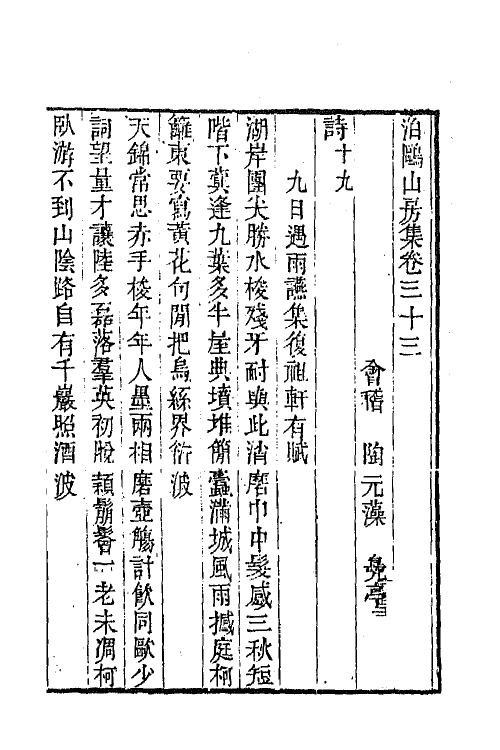 泊鷗山房集卷三十三
會稽　陶元藻　鳧亭
詩十九
九日遇雨讌集復祖軒有賦
湖岸團尖勝水梭殘牙耐與此消磨巾中髮感三秋短
階下蓂逢九葉多半屋典墳堆簡蠹滿城風雨撼庭柯
籬東要寫黃花句閒把烏絲界衍波
天錦常思赤手梭年年人墨兩相磨壺觴計飲同歐少
詞望量才讓陸多磊落羣英初脫穎鬅鬙一老未凋柯
臥游不到山陰路自有千巖照酒波